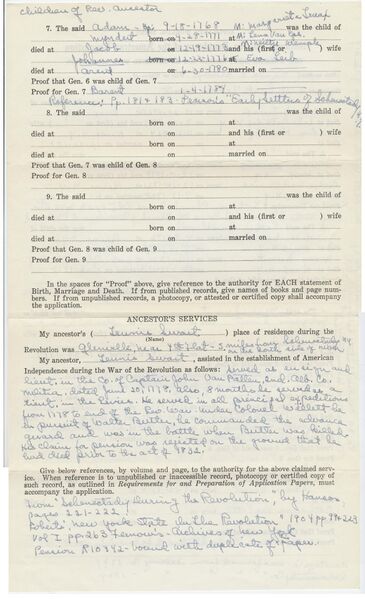 Children of Rev. Ancestor
7. The said Adam - Bp. 9-18-1768 M. Margareta was the child of
Myndert born on 9-28-1771 at M.
died at Jacob on 12-28-1773 and his (first or ) wife
Johannes born on at Eva
died at Arent on 6-30-1780 married on
Proof that Gen. 6 was child of Gen. 7
Proof for Gen. 7 Barent 1-4-1787
Reference: Pp. 181 & 183 - Pearson's "Early Settlers of Schenectady"
8. The said was the child of
born on at
died at on and his (first or ) wife
born on at
died at on married on
Proof that Gen. 7 was child of Gen. 8
Proof for Gen. 8
9. The said was the child of
born on at
died at on and his (first or ) wife
born on at
died at on married on
Proof that Gen. 8 was child of Gen. 9
Proof for Gen. 9
In the spaces for "Proof" above, give reference to the authority for EACH statement of
Birth, Marriage and Death. If from published records, give names of books and page num-
bers. If from unpublished records, a photocopy, or attested or certified copy shall accompany
the application.
ANCESTOR'S SERVICES
My ancestor's ( Teunis Swart ) place of residence during the
(Name)
Revolution was Glenville, near 4th Flat - 5 miles from Schenectady N.Y.
on the south side of
My ancestor, Teunis Swart, assisted in the establishment of American
Independence during the War of the Revolution as follows: served as ensign and
lieut. in the Co. of Captain John Van Patten, 2nd Alb. Co.
militia, dated June 20, 1778. Also, 8 months he served as
Lieut. in the Levies. He served in all principal expeditions
from 1778 to end of the Rev. War. Under Colonel Willett he
in pursuit of Walter Butler, he commanded the advance
guard and was in the battle when Butler was killed.
His claim for pension was rejected on the ground that he
had died prior to the act of 1832.
Give below references, by volume and page, to the authority for the above claimed serv-
ice. When reference is to unpublished or inaccessible record, photocopy or certified copy of
such record, as outlined in Requirements for and Preparation of Application Papers, must
accompany the application.
From "Schenectady During the Revolution" by Hanson
pages 221-222.
Roberts' New York State In The Revolution" 1904 pp.
Vol I pp. 263 Fernow's - Archives of New York
Pension R10342 - bound with duplicate of paper.